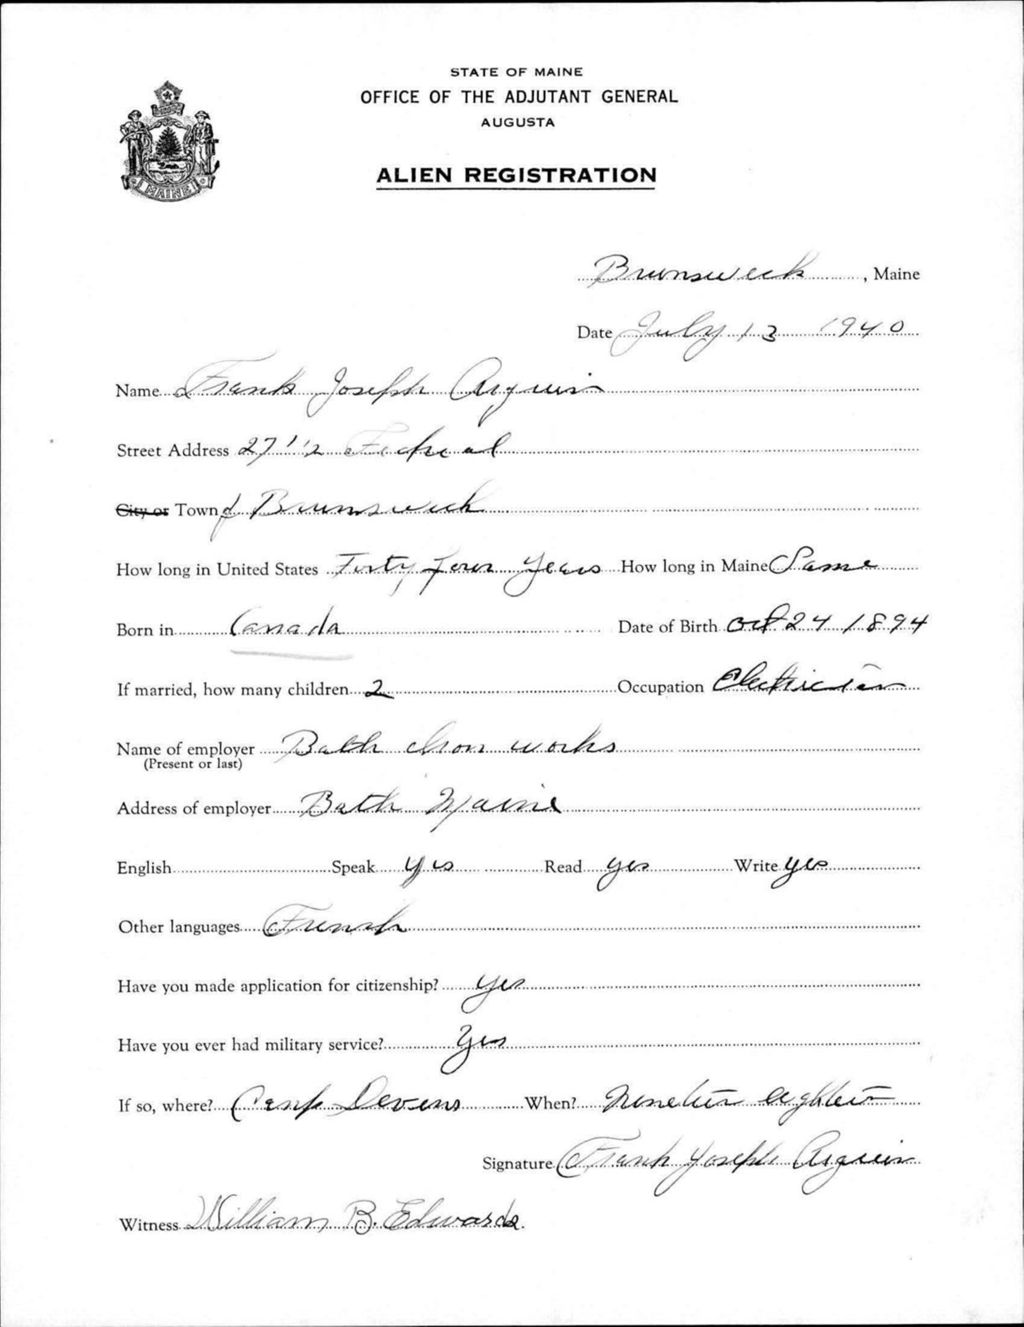 STATE OF MAINE
OFFICE OF THE ADJUTANT GENERAL
AUGUSTA
ALIEN REGISTRATION
MAINE
Brunsweek, Maine
Date July 13 1940
Name Frank Joseph Arguin
Street Address 27 1/2 Federal
City or Town of Brunswick
How long in United States Forty four Years How long in Maine Same
Born in Canada Date of Birth Oct 24 1894
If married, how many children 2 Occupation Electrician
Name of employer Bath Iron works
(Present or last)
Address of employer Bath Maine
English Speak yes Read yes Write yes
Other languages French
Have you made application for citizenship? yes
Have you ever had military service? Yes
If so, where? Camp Devens When? Nineteen eighteen
Signature Frank Joseph Arguin
Witness William B. Edwards